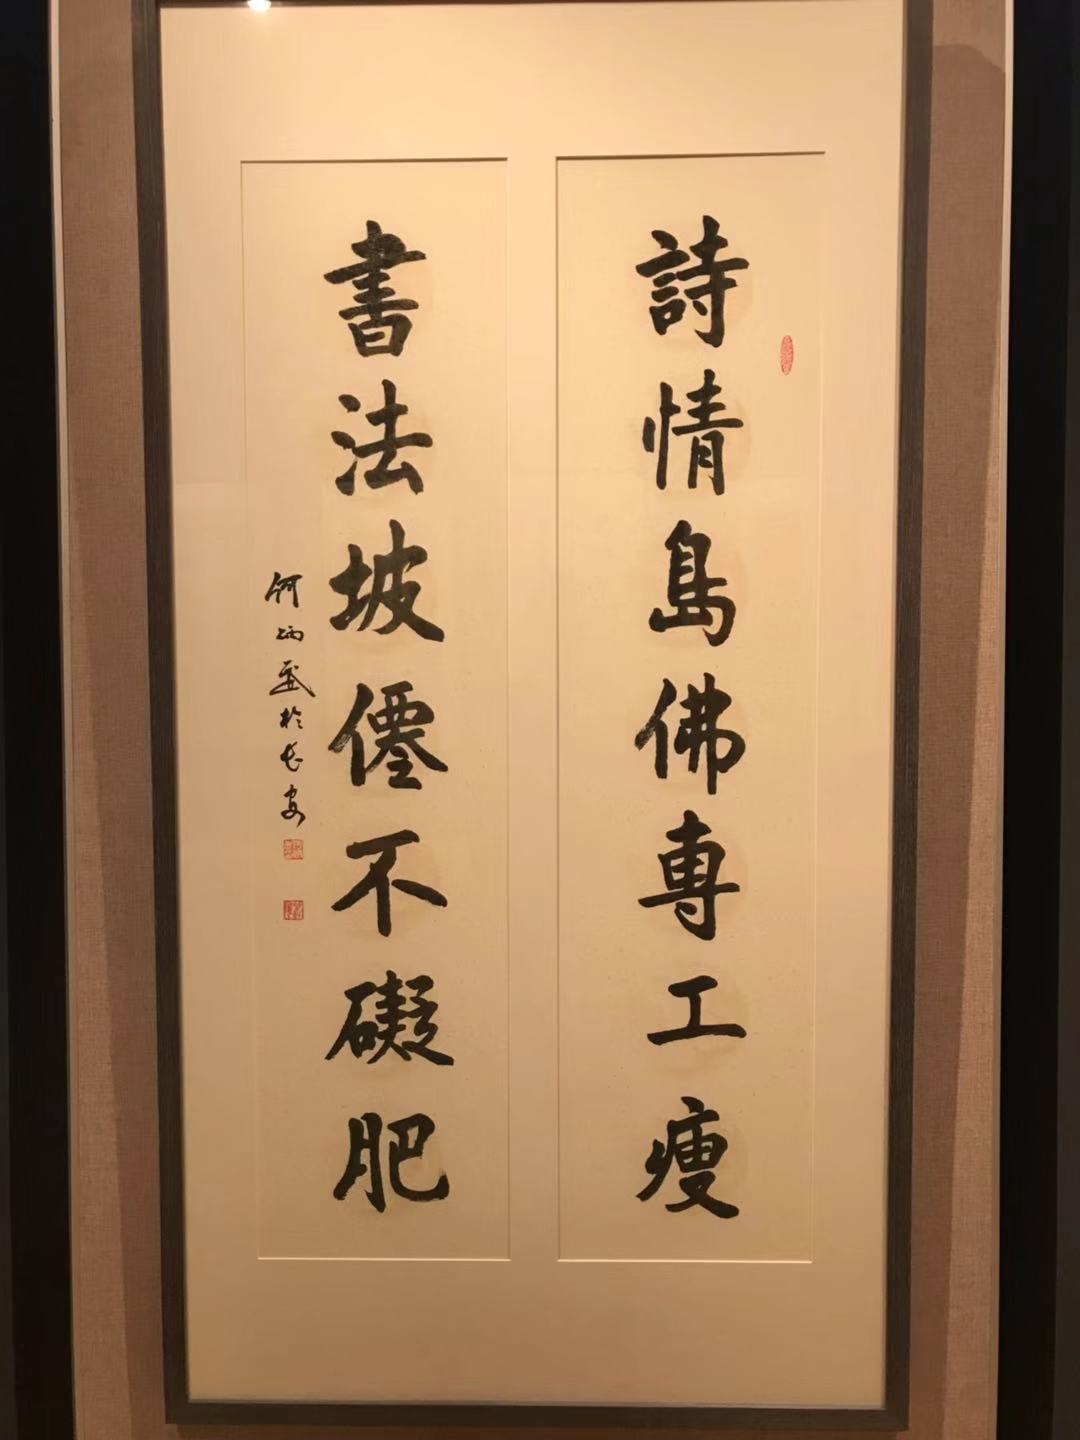 詩情島佛專工瘦
書法坡僊不礙肥
何炳武於长安